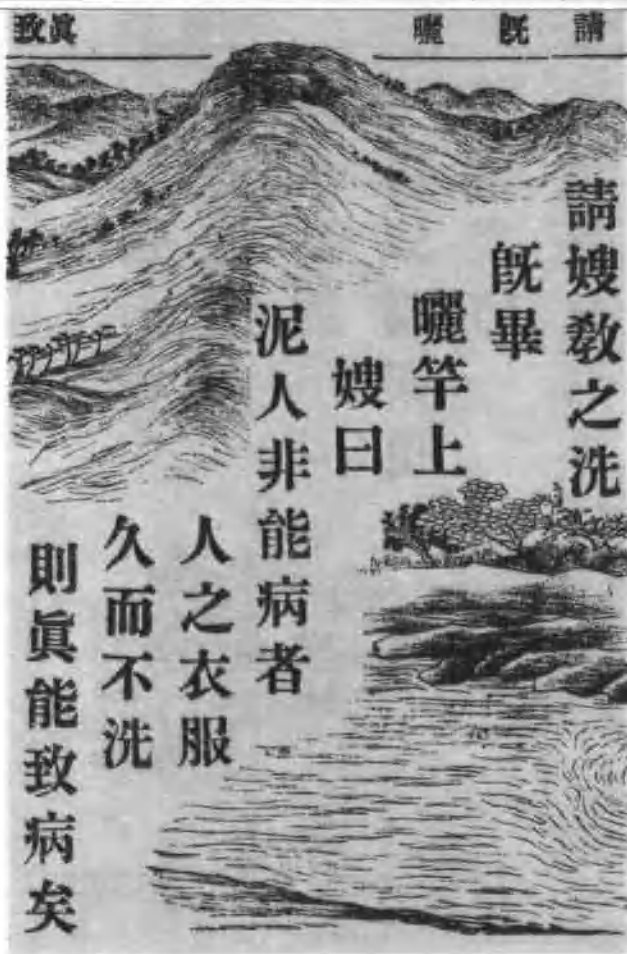 請 既 曬 眞致
請嫂敎之洗
既畢
曬竿上
嫂曰
泥人非能病者
人之衣服
久而不洗
則眞能致病矣